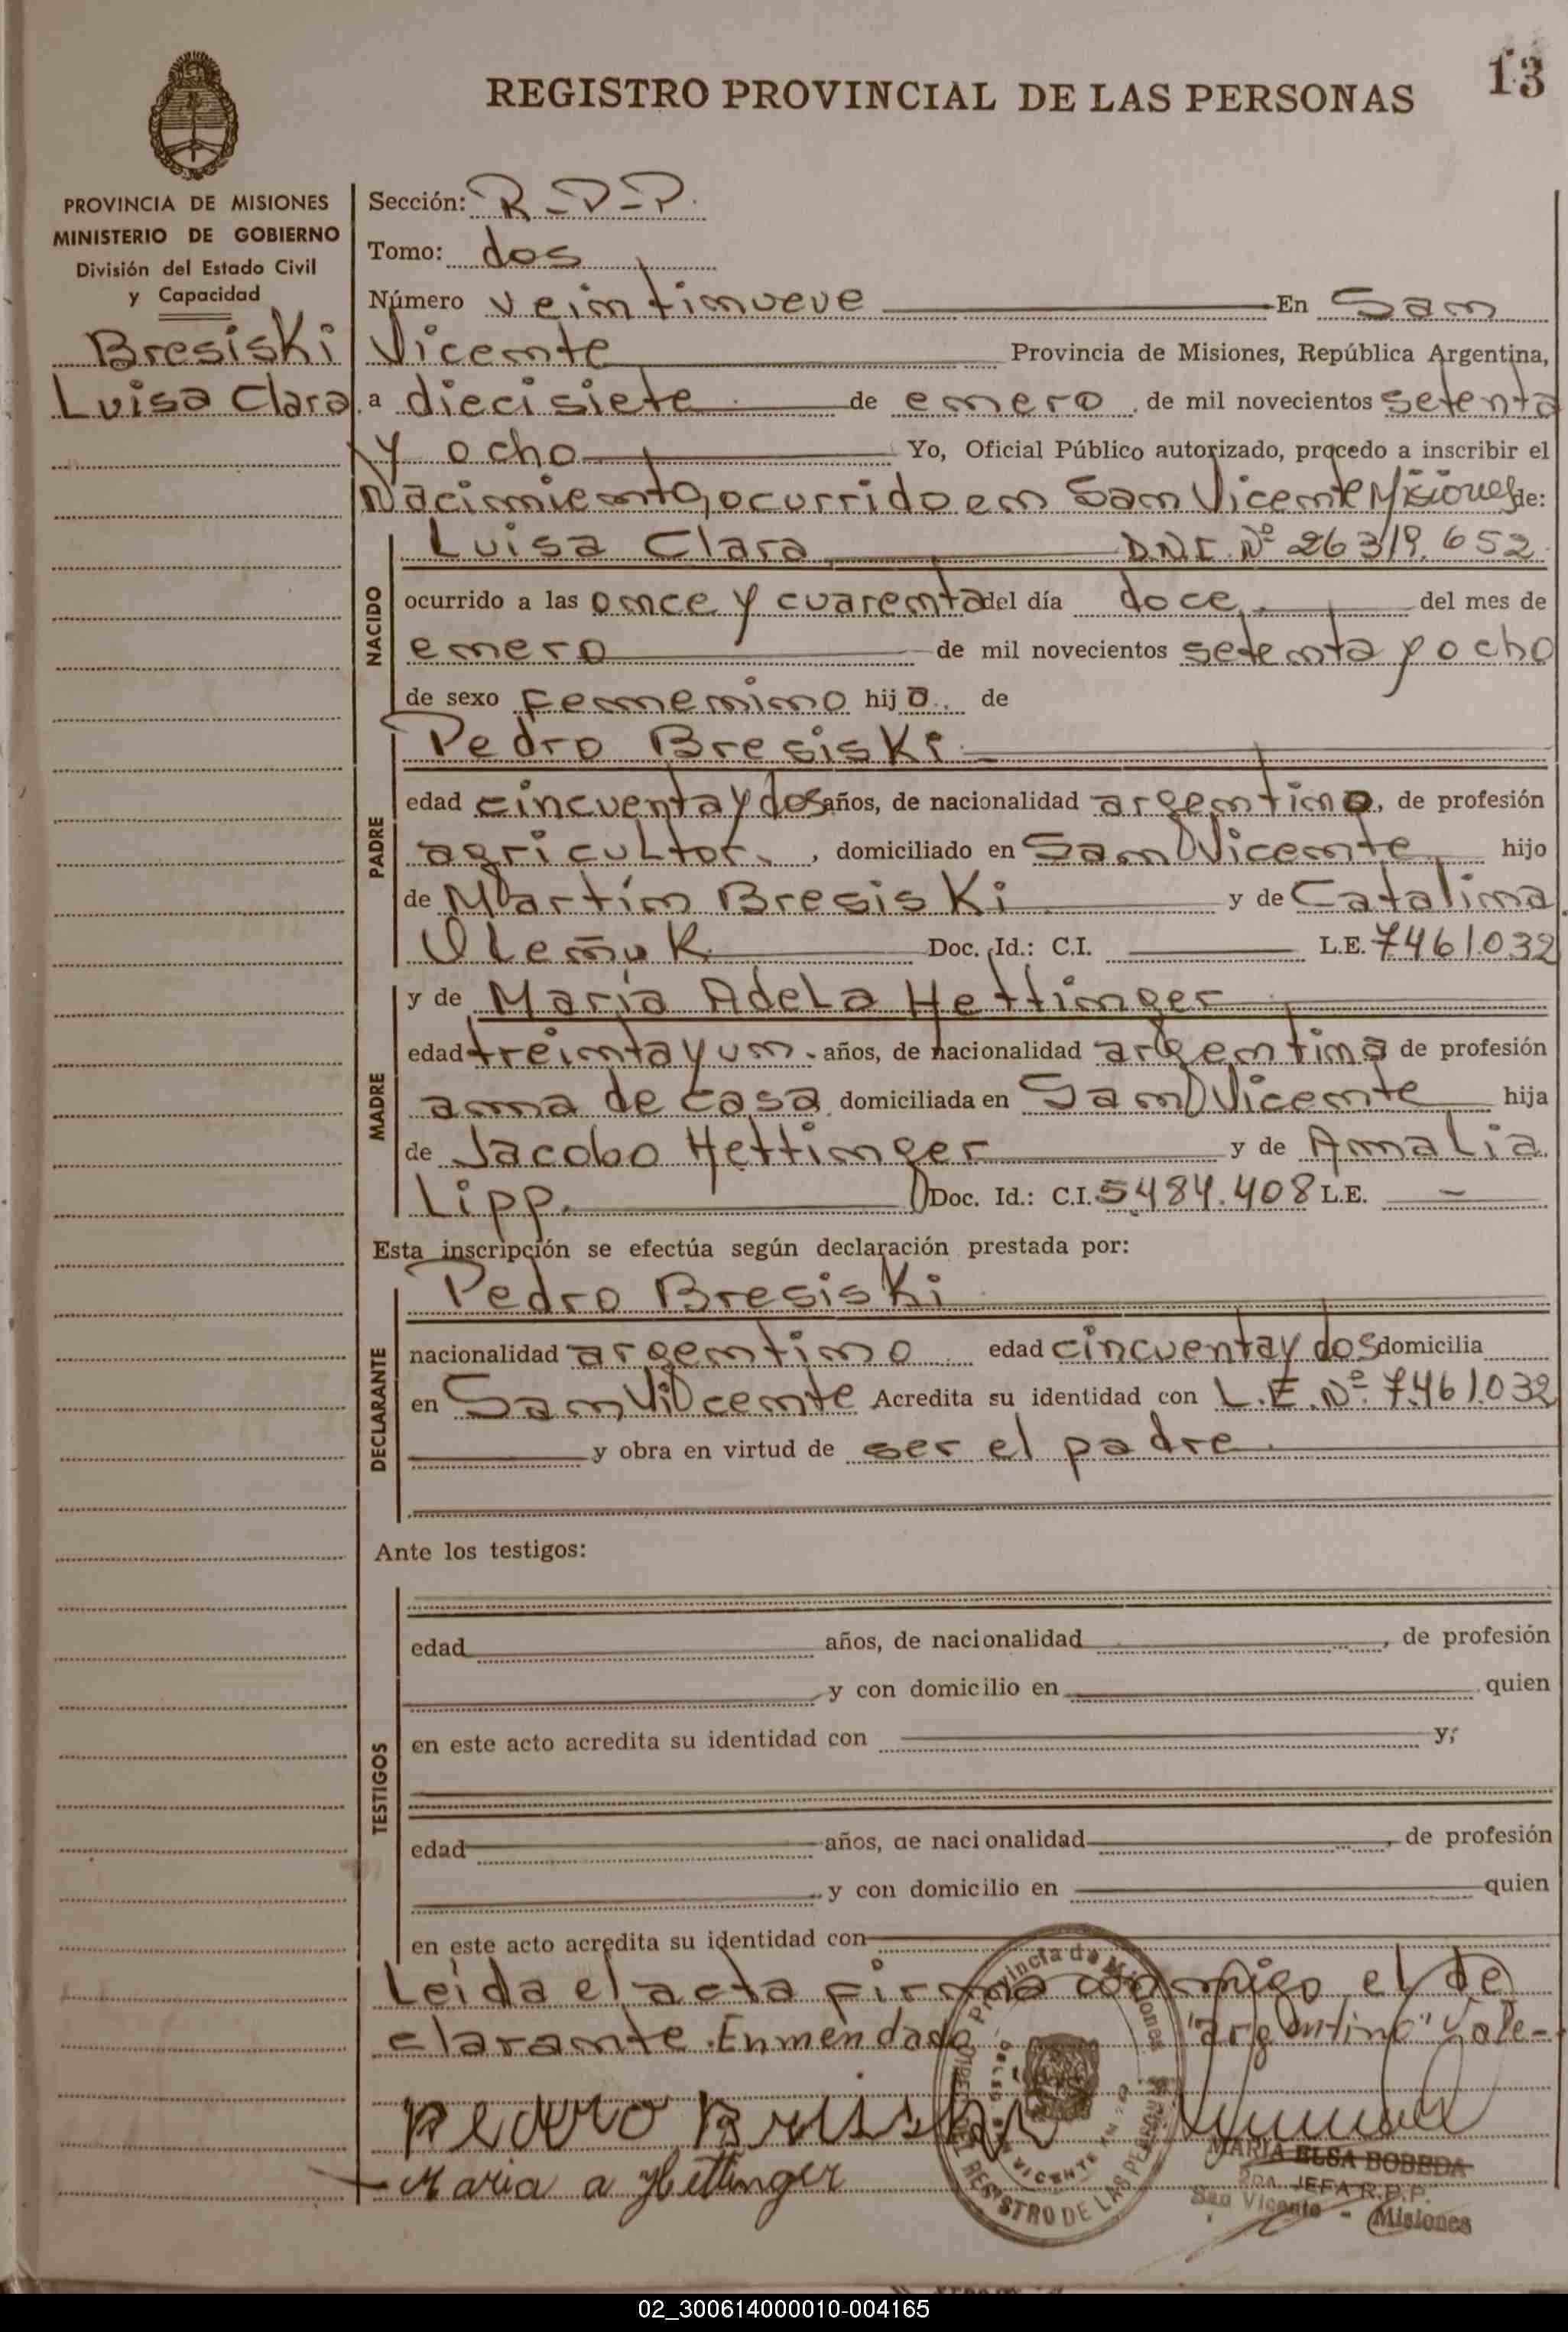 13
REGISTRO PROVINCIAL DE LAS PERSONAS
PROVINCIA DE MISIONES
MINISTERIO DE GOBIERNO
División del Estado Civil
y Capacidad
Bresiski
Luisa Clara
Sección: R-P-P.
Tomo: dos
Número veintinueve En San
Vicente Provincia de Misiones, República Argentina,
a diecisiete de enero de mil novecientos setenta
y ocho Yo, Oficial Público autorizado, procedo a inscribir el
Nacimiento, ocurrido en San Vicente Misiones de:
NACIDO
Luisa Clara D.N.I. Nº 26319.652
ocurrido a las once y cuarenta del día doce del mes de
enero de mil novecientos setenta y ocho
de sexo femenino hija de
PADRE
Pedro Bresiski
edad cincuenta y dos años, de nacionalidad argentino, de profesión
agricultor, domiciliado en San Vicente hijo
de Martín Bresiski y de Catalina
Oleñuk Doc. Id.: C.I. L.E. 7.461.032
MADRE
y de María Adela Hettinger
edad treinta y un años, de nacionalidad argentina de profesión
ama de casa domiciliada en San Vicente hija
de Jacobo Hettinger y de Amalia
Lipp. Doc. Id.: C.I. 5.484.408 L.E. -
Esta inscripción se efectúa según declaración prestada por:
DECLARANTE
Pedro Bresiski
nacionalidad argentino edad cincuenta y dos domicilia
en San Vicente Acredita su identidad con L.E. Nº 7.461.032
y obra en virtud de ser el padre.
Ante los testigos:
TESTIGOS
edad años, de nacionalidad, de profesión
y con domicilio en quien
en este acto acredita su identidad con y;
edad años, de nacionalidad, de profesión
y con domicilio en quien
en este acto acredita su identidad con
Leída el acta firma conmigo el de
clarante. Enmendado "argentino" Vale-
Pedro Brisski
Maria a Hettinger
Provincia de Misiones
REGISTRO DE LAS PERSONAS
VICENTE
MARIA ELSA BOBEDA
2DA. JEFA R.P.P.
San Vicente - Misiones
02_300614000010-004165